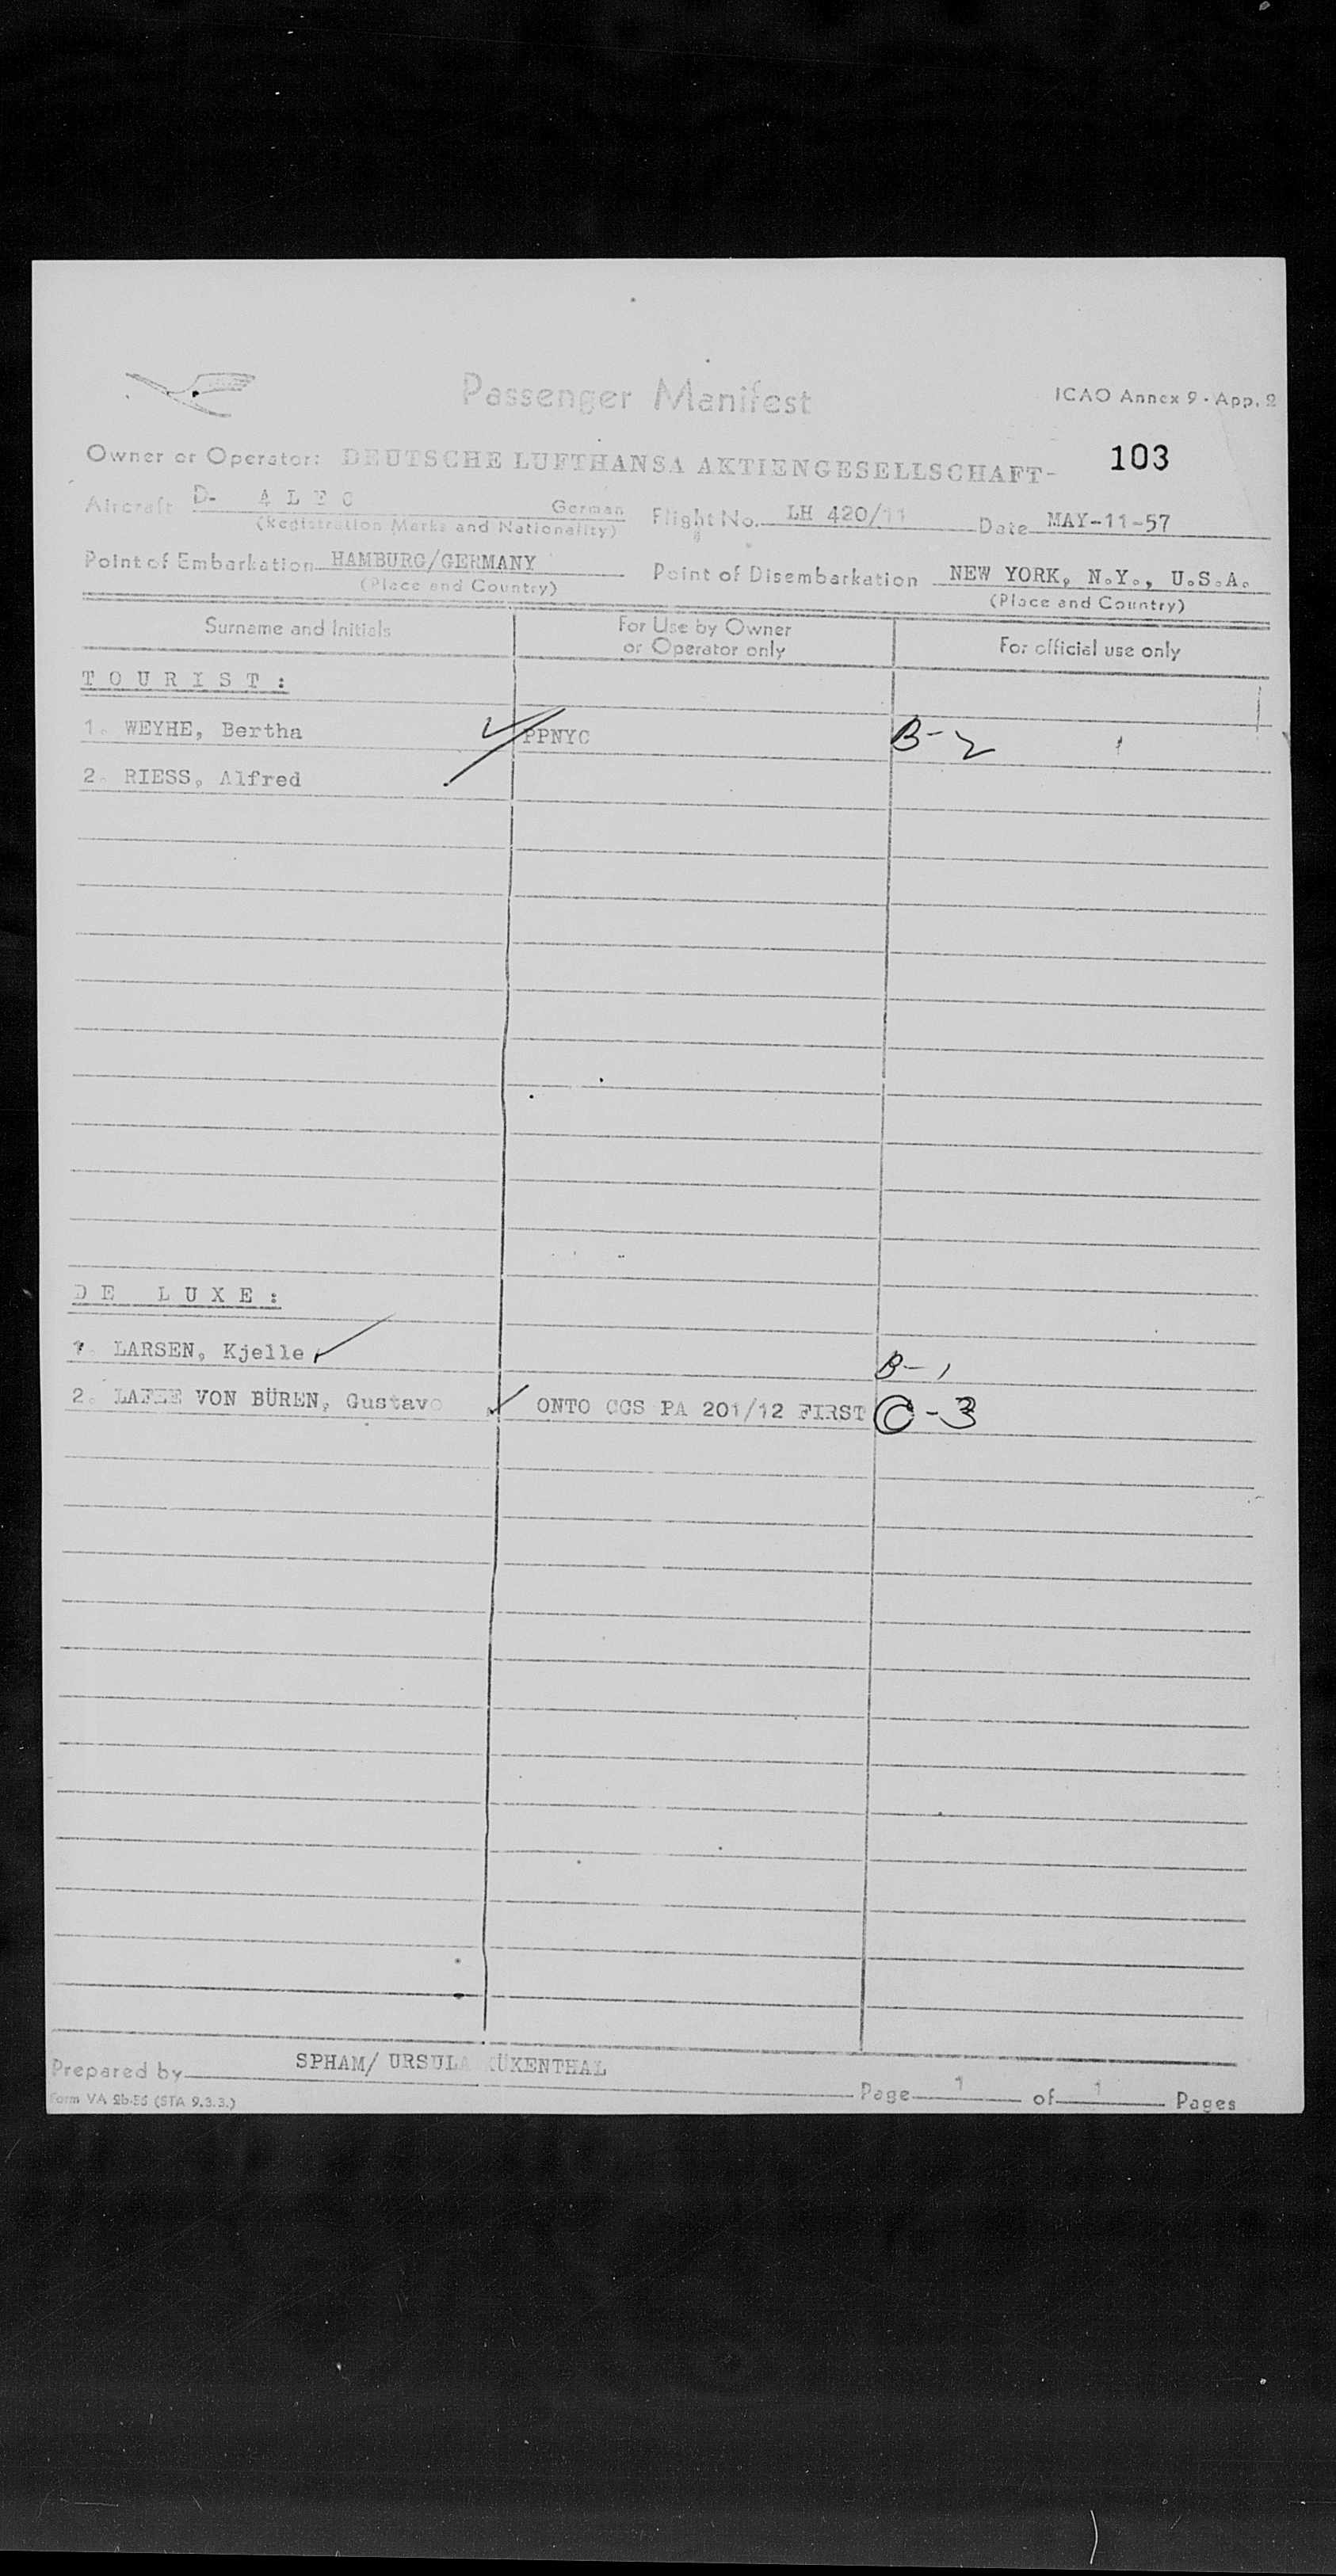 Passenger Manifest
ICAO Annex 9 - App. 2
103
Owner or Operator: DEUTSCHE LUFTHANSA AKTIENGESELLSCHAFT-
Aircraft D- A L E C German Flight No. LH 420/11 Date MAY-11-57
(Registration Marks and Nationality)
Point of Embarkation HAMBURG/GERMANY Point of Disembarkation NEW YORK, N.Y., U.S.A.
(Place and Country) (Place and Country)
Surname and Initials For Use by Owner or Operator only For official use only
T O U R I S T :
1. WEYHE, Bertha PPNYC B-2
2. RIESS, Alfred
D E L U X E :
1. LARSEN, Kjelle B-1
2. VON BÜREN, Gustavo ONTO CCS PA 201/12 FIRST C-3
Prepared by SPHAM/ URSULA ÜKENTHAL Page 1 of 1 Pages
Form VA 2b-56 (STA 9.3.3.)